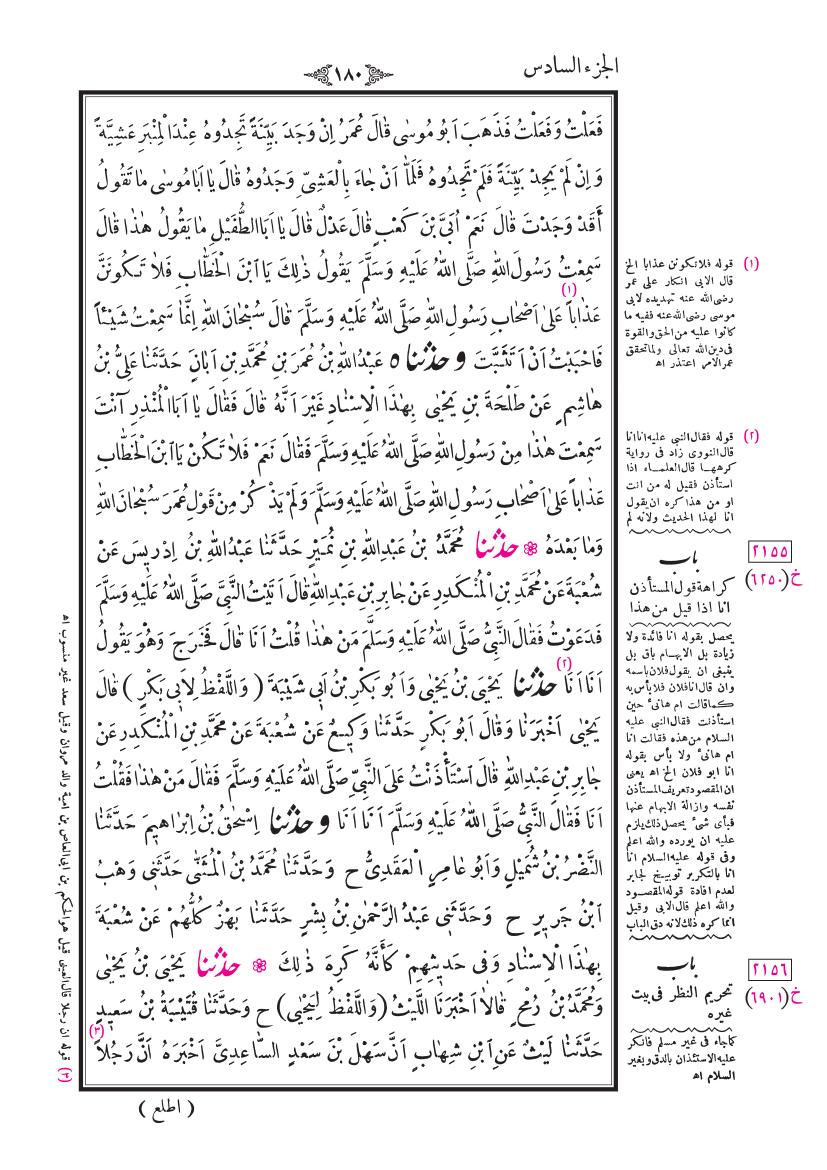 الجزء السادس
١٨٠
فَعَلْتُ وَفَعَلْتُ فَذَهَبَ اَبُو مُوسٰى قَالَ عُمَرُ اِنْ وَجَدَ بَيِّنَةً تَجِدُوهُ عِنْدَ الْمِنْبَرِ عَشِيَّةً
وَاِنْ لَمْ يَجِدْ بَيِّنَةً فَلَمْ تَجِدُوهُ فَلَمَّا اَنْ جَاءَ بِالْعَشِيِّ وَجَدُوهُ قَالَ يَا اَبَا مُوسٰى مَا تَقُولُ
أَقَدْ وَجَدْتَ قَالَ نَعَمْ اُبَيَّ بْنَ كَعْبٍ قَالَ عَدْلٌ قَالَ يَا اَبَا الطُّفَيْلِ مَا يَقُولُ هٰذَا قَالَ
سَمِعْتُ رَسُولَ اللهِ صَلَّى اللهُ عَلَيْهِ وَسَلَّمَ يَقُولُ ذٰلِكَ يَا ابْنَ الْخَطَّابِ فَلَا تَكُونَنَّ
عَذَاباً عَلٰى اَصْحَابِ رَسُولِ اللهِ صَلَّى اللهُ عَلَيْهِ وَسَلَّمَ (١) قَالَ سُبْحَانَ اللهِ اِنَّمَا سَمِعْتُ شَيْئاً
فَاَحْبَبْتُ اَنْ اَتَثَبَّتَ وحدثنا ٥ عَبْدُ اللهِ بْنُ عُمَرَ بْنِ مُحَمَّدِ بْنِ اَبَانَ حَدَّثَنَا عَلِيُّ بْنُ
هَاشِمٍ عَنْ طَلْحَةَ بْنِ يَحْيٰى بِهٰذَا الْاِسْنَادِ غَيْرَ اَنَّهُ قَالَ فَقَالَ يَا اَبَا الْمُنْذِرِ آنْتَ
سَمِعْتَ هٰذَا مِنْ رَسُولِ اللهِ صَلَّى اللهُ عَلَيْهِ وَسَلَّمَ فَقَالَ نَعَمْ فَلَا تَكُنْ يَا ابْنَ الْخَطَّابِ
عَذَاباً عَلٰى اَصْحَابِ رَسُولِ اللهِ صَلَّى اللهُ عَلَيْهِ وَسَلَّمَ وَلَمْ يَذْكُرْ مِنْ قَوْلِ عُمَرَ سُبْحَانَ اللهِ
وَمَا بَعْدَهُ ❁ حدثنا مُحَمَّدُ بْنُ عَبْدِ اللهِ بْنِ نُمَيْرٍ حَدَّثَنَا عَبْدُ اللهِ بْنُ اِدْرِيسَ عَنْ
شُعْبَةَ عَنْ مُحَمَّدِ بْنِ الْمُنْكَدِرِ عَنْ جَابِرِ بْنِ عَبْدِ اللهِ قَالَ اَتَيْتُ النَّبِيَّ صَلَّى اللهُ عَلَيْهِ وَسَلَّمَ
فَدَعَوْتُ فَقَالَ النَّبِيُّ صَلَّى اللهُ عَلَيْهِ وَسَلَّمَ مَنْ هٰذَا قُلْتُ اَنَا قَالَ فَخَرَجَ وَهُوَ يَقُولُ
اَنَا اَنَا (٢) حدثنا يَحْيَى بْنُ يَحْيٰى وَاَبُو بَكْرِ بْنُ اَبِي شَيْبَةَ ( وَاللَّفْظُ لِاَبِي بَكْرٍ ) قَالَ
يَحْيٰى اَخْبَرَنَا وَقَالَ اَبُو بَكْرٍ حَدَّثَنَا وَكِيعٌ عَنْ شُعْبَةَ عَنْ مُحَمَّدِ بْنِ الْمُنْكَدِرِ عَنْ
جَابِرِ بْنِ عَبْدِ اللهِ قَالَ اسْتَأْذَنْتُ عَلَى النَّبِيِّ صَلَّى اللهُ عَلَيْهِ وَسَلَّمَ فَقَالَ مَنْ هٰذَا فَقُلْتُ
اَنَا فَقَالَ النَّبِيُّ صَلَّى اللهُ عَلَيْهِ وَسَلَّمَ اَنَا اَنَا وحدثنا اِسْحٰقُ بْنُ اِبْرَاهِيمَ حَدَّثَنَا
النَّضْرُ بْنُ شُمَيْلٍ وَاَبُو عَامِرٍ الْعَقَدِيُّ ح وَحَدَّثَنَا مُحَمَّدُ بْنُ الْمُثَنَّى حَدَّثَنِي وَهْبُ
ابْنُ جَرِيرٍ ح وَحَدَّثَنِي عَبْدُ الرَّحْمٰنِ بْنُ بِشْرٍ حَدَّثَنَا بَهْزٌ كُلُّهُمْ عَنْ شُعْبَةَ
بِهٰذَا الْاِسْنَادِ وَفِي حَدِيثِهِمْ كَأَنَّهُ كَرِهَ ذٰلِكَ ❁ حدثنا يَحْيَى بْنُ يَحْيٰى
وَمُحَمَّدُ بْنُ رُمْحٍ قَالَا اَخْبَرَنَا اللَّيْثُ (وَاللَّفْظُ لِيَحْيٰى) ح وَحَدَّثَنَا قُتَيْبَةُ بْنُ سَعِيدٍ
حَدَّثَنَا لَيْثٌ عَنِ ابْنِ شِهَابٍ اَنَّ سَهْلَ بْنَ سَعْدٍ السَّاعِدِيَّ اَخْبَرَهُ اَنَّ رَجُلاً (٣)
( اطلع )
(١) قوله فلا تكونن عذابا الخ
قال الابى انكار على عمر
رضى الله عنه تهديده لابى
موسى رضى الله عنه ففيه ما
كانوا عليه من الحق والقوة
فى دين الله تعالى ولما تحقق
عمر الامر اعتذر اه
(٢) قوله فقال النبى عليه انا انا
قال النووى زاد فى رواية
كرهها قال العلماء اذا
استأذن فقيل له من انت
او من هذا كره ان يقول
انا لهذا الحديث ولانه لم
٢١٥٥
خ (٦٢٥٠)
باب
كراهة قول المستأذن
انا اذا قيل من هذا
يحصل بقوله انا فائدة ولا
زيادة بل الابهام باق بل
ينبغى ان يقول فلان باسمه
وان قال انا فلان فلا بأس به
كما قالت ام هانئ حين
استأذنت فقال النبى عليه
السلام من هذه فقالت انا
ام هانئ ولا بأس بقوله
انا ابو فلان الخ اه يعنى
ان المقصود تعريف المستأذن
نفسه وازالة الابهام عنها
فبأى شئ يحصل ذلك يلزم
عليه ان يورده والله اعلم
وفى قوله عليه السلام انا
انا بالتكرير توبيخ لجابر
لعدم افادة قوله المقصود
والله اعلم قال الابى وقيل
انما كره ذلك لانه دق الباب
٢١٥٦
خ (٦٩٠١)
باب
تحريم النظر فى بيت
غيره
كما جاء فى غير مسلم فانكر
عليه الاستئذان بالدق وبغير
السلام اه
(٣) قوله ان رجلا قال العينى قيل هو الحكم بن ابى العاص بن امية والد مروان وقيل سعد غير منسوب اه